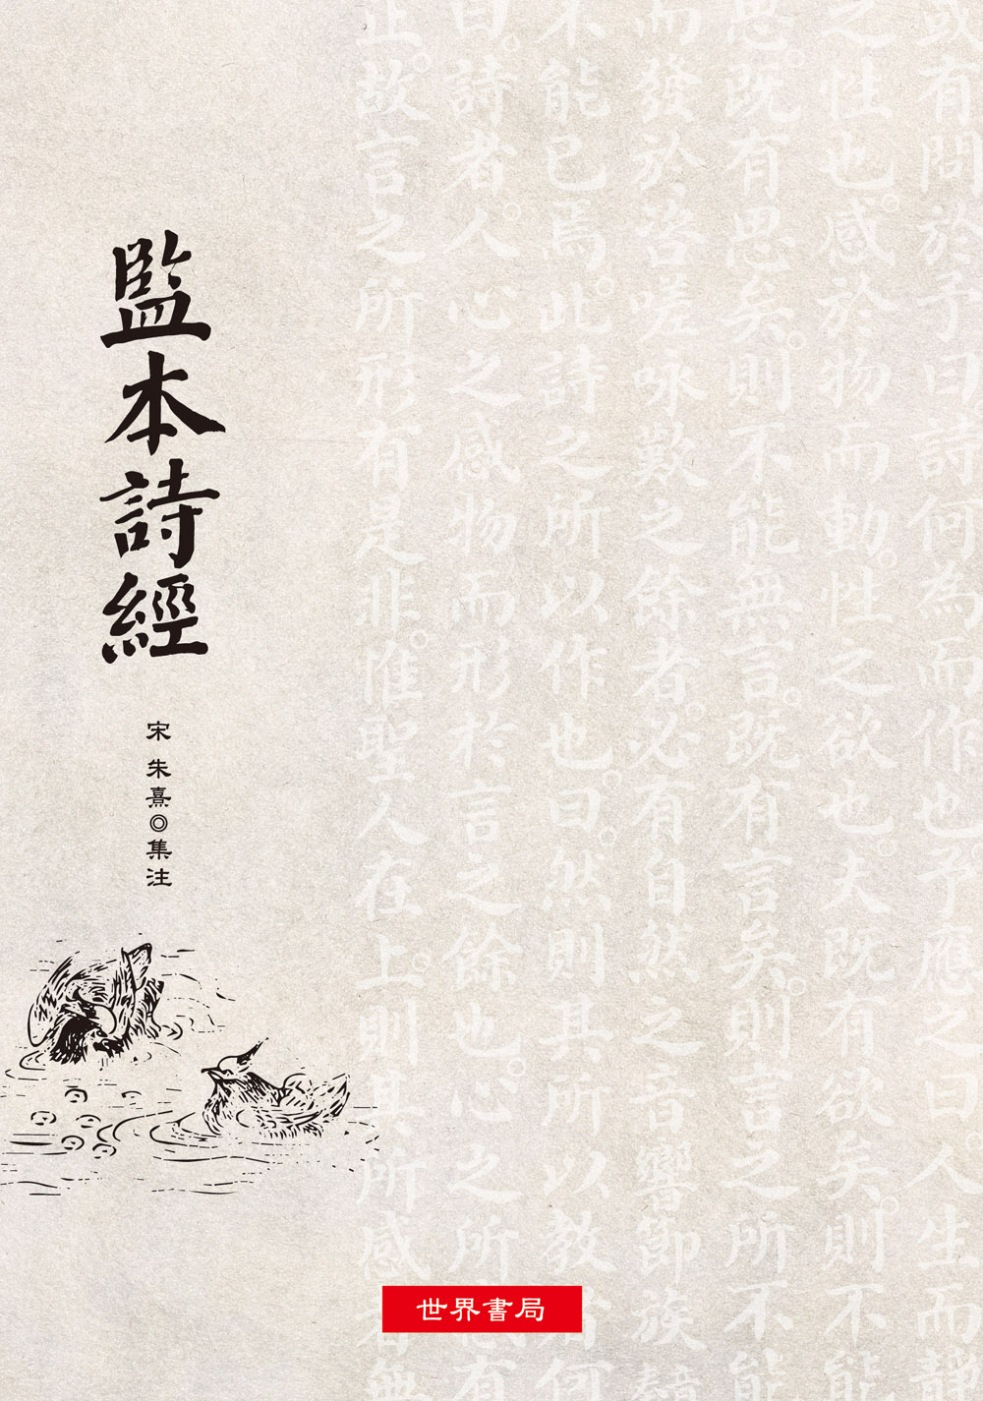 或有問於予曰詩何為而作也。予應之曰人生而靜
之性也。感於物而動。性之欲也。夫既有欲矣。則不能
思。既有思矣。則不能無言。既有言矣。則言之所不能
而發於咨嗟咏歎之餘者。必有自然之音響節族
不能已焉。此詩之所以作也。曰。然則其所以教者何
曰。詩者。人心之感物而形於言之餘也。心之所感有
上。故言之所形有是非。惟聖人在上。則其所感者無
監本詩經
宋 朱熹◎集注
世界書局